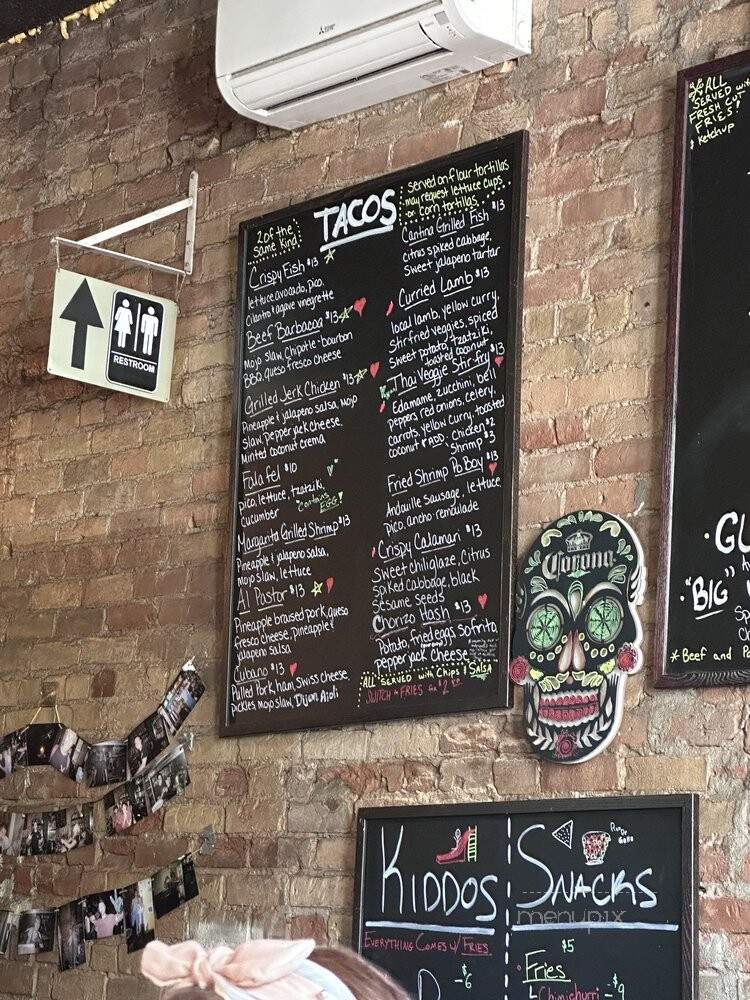 TACOS
2 of the
same kind!
served on flour tortillas
may request lettuce cups
or corn tortillas
Crispy Fish $13
lettuce, avocado, pico,
Cilantro & agave vinegrette
Beef Barbacoa $13
Mojo slaw, Chipotle-bourbon
BBQ, queso fresco cheese
Grilled Jerk Chicken $13
Pineapple & jalapeno salsa, mojo
Slaw, pepper jack cheese,
Minted coconut crema
Falafel $10
pico, lettuce, tzatziki,
cucumber
*contains
EGG!
Margarita Grilled Shrimp $13
Pineapple & jalapeno salsa,
mojo slaw, lettuce
Al Pastor $13
Pineapple braised pork, queso
fresco cheese, pineapple &
jalapeno salsa
Cubano $13
Pulled Pork, ham, Swiss cheese,
pickles, mojo slaw, Dijon Aioli
Cantina Grilled Fish $13
citrus spiked cabbage,
Sweet jalapeno tartar
Curried Lamb $13
local lamb, yellow curry,
Stirfried veggies, spiced
Sweet potato, tzatziki,
toasted coconut
Thai Veggie Stir-fry $13
Edamame, zucchini, bell
peppers, red onions, celery,
carrots, yellow curry, toasted
coconut *ADD: chicken $2
Shrimp $3
Fried Shrimp Po Boy $13
Andouille Sausage, lettuce
pico, ancho remoulade
Crispy Calamari $13
Sweet chili glaze, Citrus
Spiked cabbage, black
Sesame seeds
Chorizo Hash $13
Potato, fried eggs, Sofrito,
pepper jack Cheese
ALL SERVED with Chips & SALSA
SWITCH to FRIES for $2
RESTROOM
Corona
ALL
SERVED with
FRESH CUT
FRIES!
& Ketchup
"BIG"
*Beef and
KIDDOS
EVERYTHING COMES w/ FRIES
-$6
SNACKS
$5
Fries
Chimichurri -$9
menupix